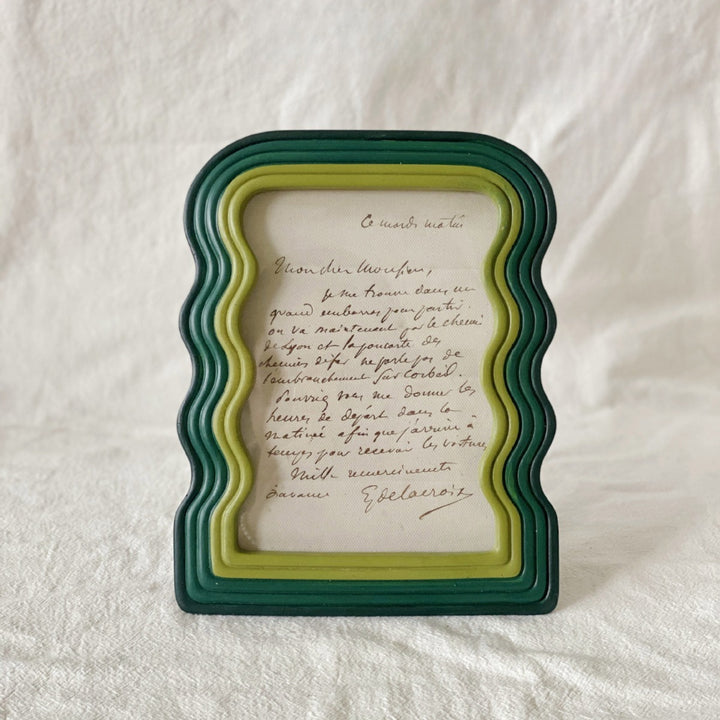 Ce mardi matin
Mon cher Monsieur,
je me trouve dans un
grand embarras pour partir.
on va maintenant par le chemin
de Lyon et la pancarte des
chemins de fer ne parle pas de
l'embranchement sur Corbeil.
Pourriez vous me donner les
heures de départ dans la
matinée afin que j'arrive à
temps pour recevoir les voitures
Mille remerciements
d'avance EugDelacroix